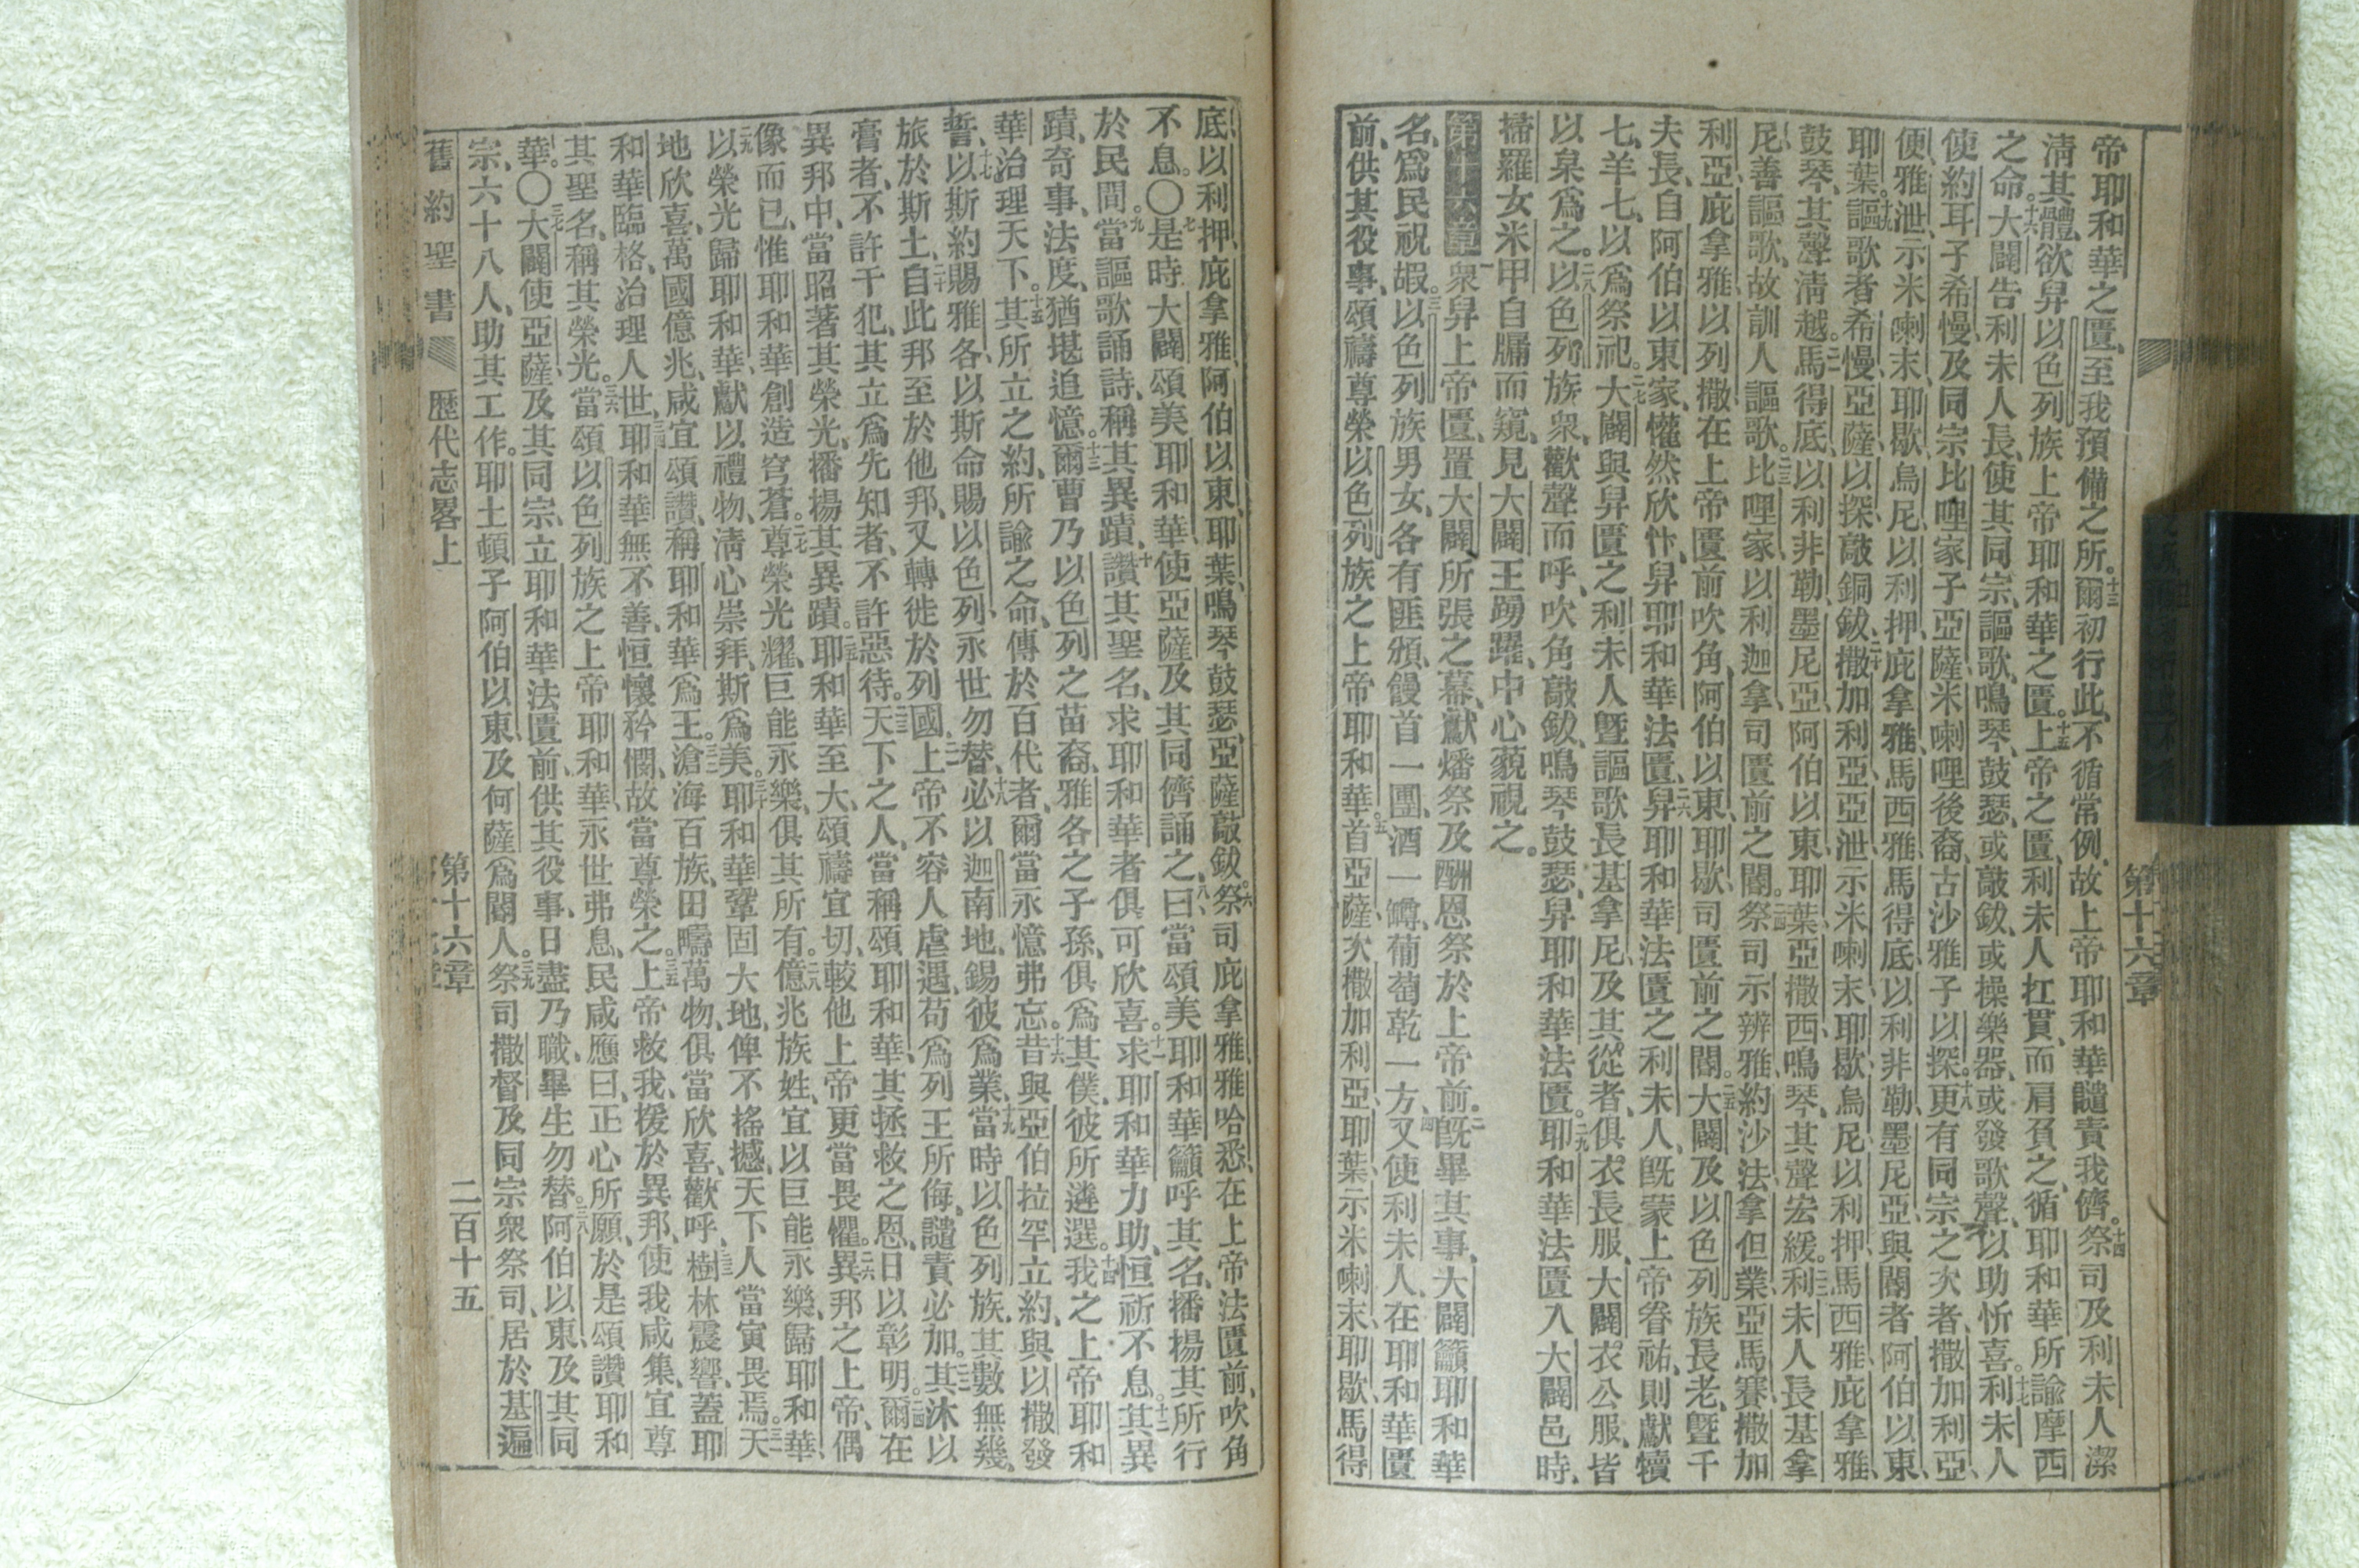 第十六章
帝耶和華之匱、至我預備之所。十三爾初行此、不循常例、故上帝耶和華譴責我儕。十四祭司及利未人潔
清其體、欲舁以色列族上帝耶和華之匱。十五上帝之匱、利未人扛貫、而肩負之、循耶和華所諭摩西
之命。十六大闢告利未人長、使其同宗、謳歌、鳴琴、鼓瑟、或敲鈸、或操樂器、或發歌聲、以助忻喜。十七利未人
使約耳子希幔、及同宗比哩家子亞薩、米喇哩後裔、古沙雅子以探。十八更有同宗之次者、撒加利亞、
便、雅泄、示米喇末、耶歇、烏尼、以利押、庇拿雅、馬西雅、馬得底、以利非勒、墨尼亞、與閽者阿伯以東、
耶葉。十九謳歌者希幔、亞薩、以探、敲銅鈸、二十撒加利亞、亞泄、示米喇末、耶歇、烏尼、以利押、馬西雅、庇拿雅、
鼓琴、其聲清越。二一馬得底、以利非勒、墨尼亞、阿伯以東、耶葉、亞撒西鳴琴、其聲宏緩。二二利未人長基拿
尼、善謳歌、故訓人謳歌。二三比哩家、以利迦拿、司匱前之閽。二四祭司示辨雅、約沙法、拿但業、亞馬賽、撒加
利亞、庇拿雅、以列撒、在上帝匱前吹角、阿伯以東、耶歇、司匱前之閽。二五大闢及以色列族長老、曁千
夫長、自阿伯以東家、懽然欣忭、舁耶和華法匱、二六舁耶和華法匱之利未人、旣蒙上帝眷祐、則獻犢
七、羊七、以爲祭祀。二七大闢與舁匱之利未人、曁謳歌長基拿尼、及其從者、俱衣長服、大闢衣公服、皆
以枲爲之。二八以色列族衆、歡聲而呼、吹角、敲鈸、鳴琴、鼓瑟、舁耶和華法匱。二九耶和華法匱入大闢邑時、
掃羅女米甲自牖而窺、見大闢王踴躍、中心藐視之。
第十六章 一衆舁上帝匱、置大闢所張之幕、獻燔祭及酬恩祭於上帝前。二旣畢其事、大闢籲耶和華
名、爲民祝嘏。三以色列族男女、各有匪頒、饅首一團、酒一罇、葡萄乾一方、四又使利未人、在耶和華匱
前、供其役事、頌禱尊榮以色列族之上帝耶和華。五首亞薩、次撒加利亞、耶葉、示米喇末、耶歇、馬得
底、以利押、庇拿雅、阿伯以東、耶葉、鳴琴鼓瑟、亞薩敲鈸。六祭司庇拿雅、雅哈悉、在上帝法匱前、吹角
不息。〇七是時大闢頌美耶和華、使亞薩及其同儕誦之、八曰、當頌美耶和華、籲呼其名、播揚其所行
於民間。九當謳歌誦詩、稱其異蹟、十讚其聖名、求耶和華者俱可欣喜。十一求耶和華力助、恒祈不息。十二其異
蹟、奇事、法度、猶堪追憶。十三爾曹乃以色列之苗裔、雅各之子孫、俱爲其僕、彼所遴選。十四我之上帝耶和
華、治理天下。十五其所立之約、所諭之命、傳於百代者、爾當永憶弗忘。十六昔與亞伯拉罕立約、與以撒發
誓、十七以斯約賜雅各、以斯命賜以色列、永世勿替、十八必以迦南地、錫彼爲業、十九當時以色列族、其數無幾、
旅於斯土、二十自此邦至於他邦、又轉徙於列國、二一上帝不容人虐遇、苟爲列王所侮、譴責必加。二二其沐以
膏者、不許干犯、其立爲先知者、不許惡待。二三天下之人、當稱頌耶和華、其拯救之恩、日以彰明。二四爾在
異邦中、當昭著其榮光、播揚其異蹟。二五耶和華至大、頌禱宜切、較他上帝、更當畏懼。二六異邦之上帝、偶
像而已、惟耶和華創造穹蒼。二七尊榮光耀、巨能永樂、俱其所有。二八億兆族姓、宜以巨能永樂、歸耶和華、
二九以榮光歸耶和華、獻以禮物、清心崇拜、斯爲美。三十耶和華鞏固大地、俾不搖撼、天下人當寅畏焉。三一天
地欣喜、萬國億兆、咸宜頌讚、稱耶和華爲王。三二滄海百族、田疇萬物、俱當欣喜、歡呼、三三樹林震響、蓋耶
和華臨格、治理人世、三四耶和華無不善、恒懷矜憫、故當尊榮之。三五上帝救我、援於異邦、使我咸集、宜尊
其聖名、稱其榮光。三六當頌以色列族之上帝耶和華、永世弗息、民咸應曰、正心所願、於是頌讚耶和
華。〇三七大闢使亞薩及其同宗、立耶和華法匱前、供其役事、日盡乃職、畢生勿替。三八阿伯以東、及其同
宗、六十八人、助其工作。耶土頓子阿伯以東、及何薩爲閽人。三九祭司撒督及同宗衆祭司、居於基遍
舊約聖書 歷代志畧上 第十六章 二百十五